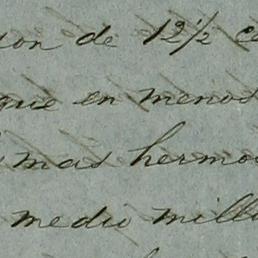 son de 12½ ce
que en menos
mas hermo
medio mill